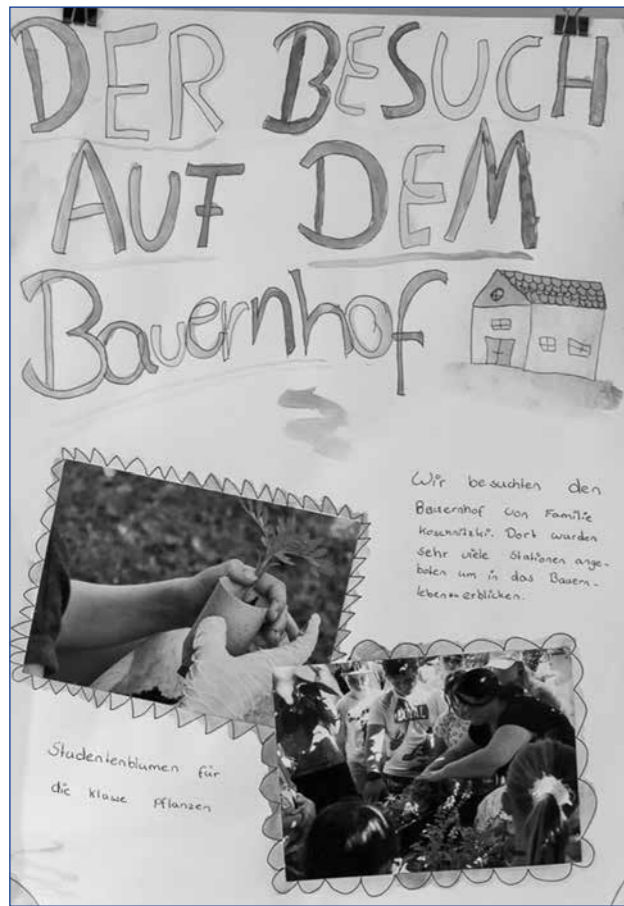 DER BESUCH
AUF DEM
Bauernhof
Wir besuchten den
Bauernhof von Familie
Koschnitzki. Dort wurden
sehr viele Stationen ange-
boten um in das Bauern-
leben erblicken.
Studentenblumen für
die Klasse Pflanzen